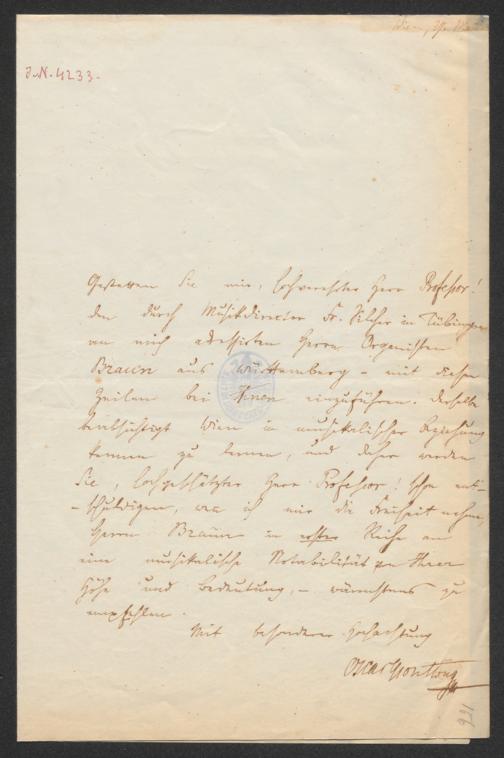 Wien,
J.N. 4233.
Gestatten Sie mir, hochverehrter Herr Professor!
den durch Musikdirector Fr. Silcher in Tübingen
an mich adressirten Herrn Organisten
Braun aus Württemberg – mit diesen
Zeilen bei Ihnen einzuführen. Derselbe
beabsichtigt Wien in musikalischer Beziehung
kennen zu lernen, und daher werden
Sie, hochgeschätzter Herr Professor! schon ent-
-schuldigen, wenn ich mir die Freiheit nehme,
Herrn Braun in erster Reihe an
eine musikalische Notabilität von Ihrer
Höhe und Bedeutung, – wärmstens zu
empfehlen.
Mit besonderer Hochachtung
Oscar